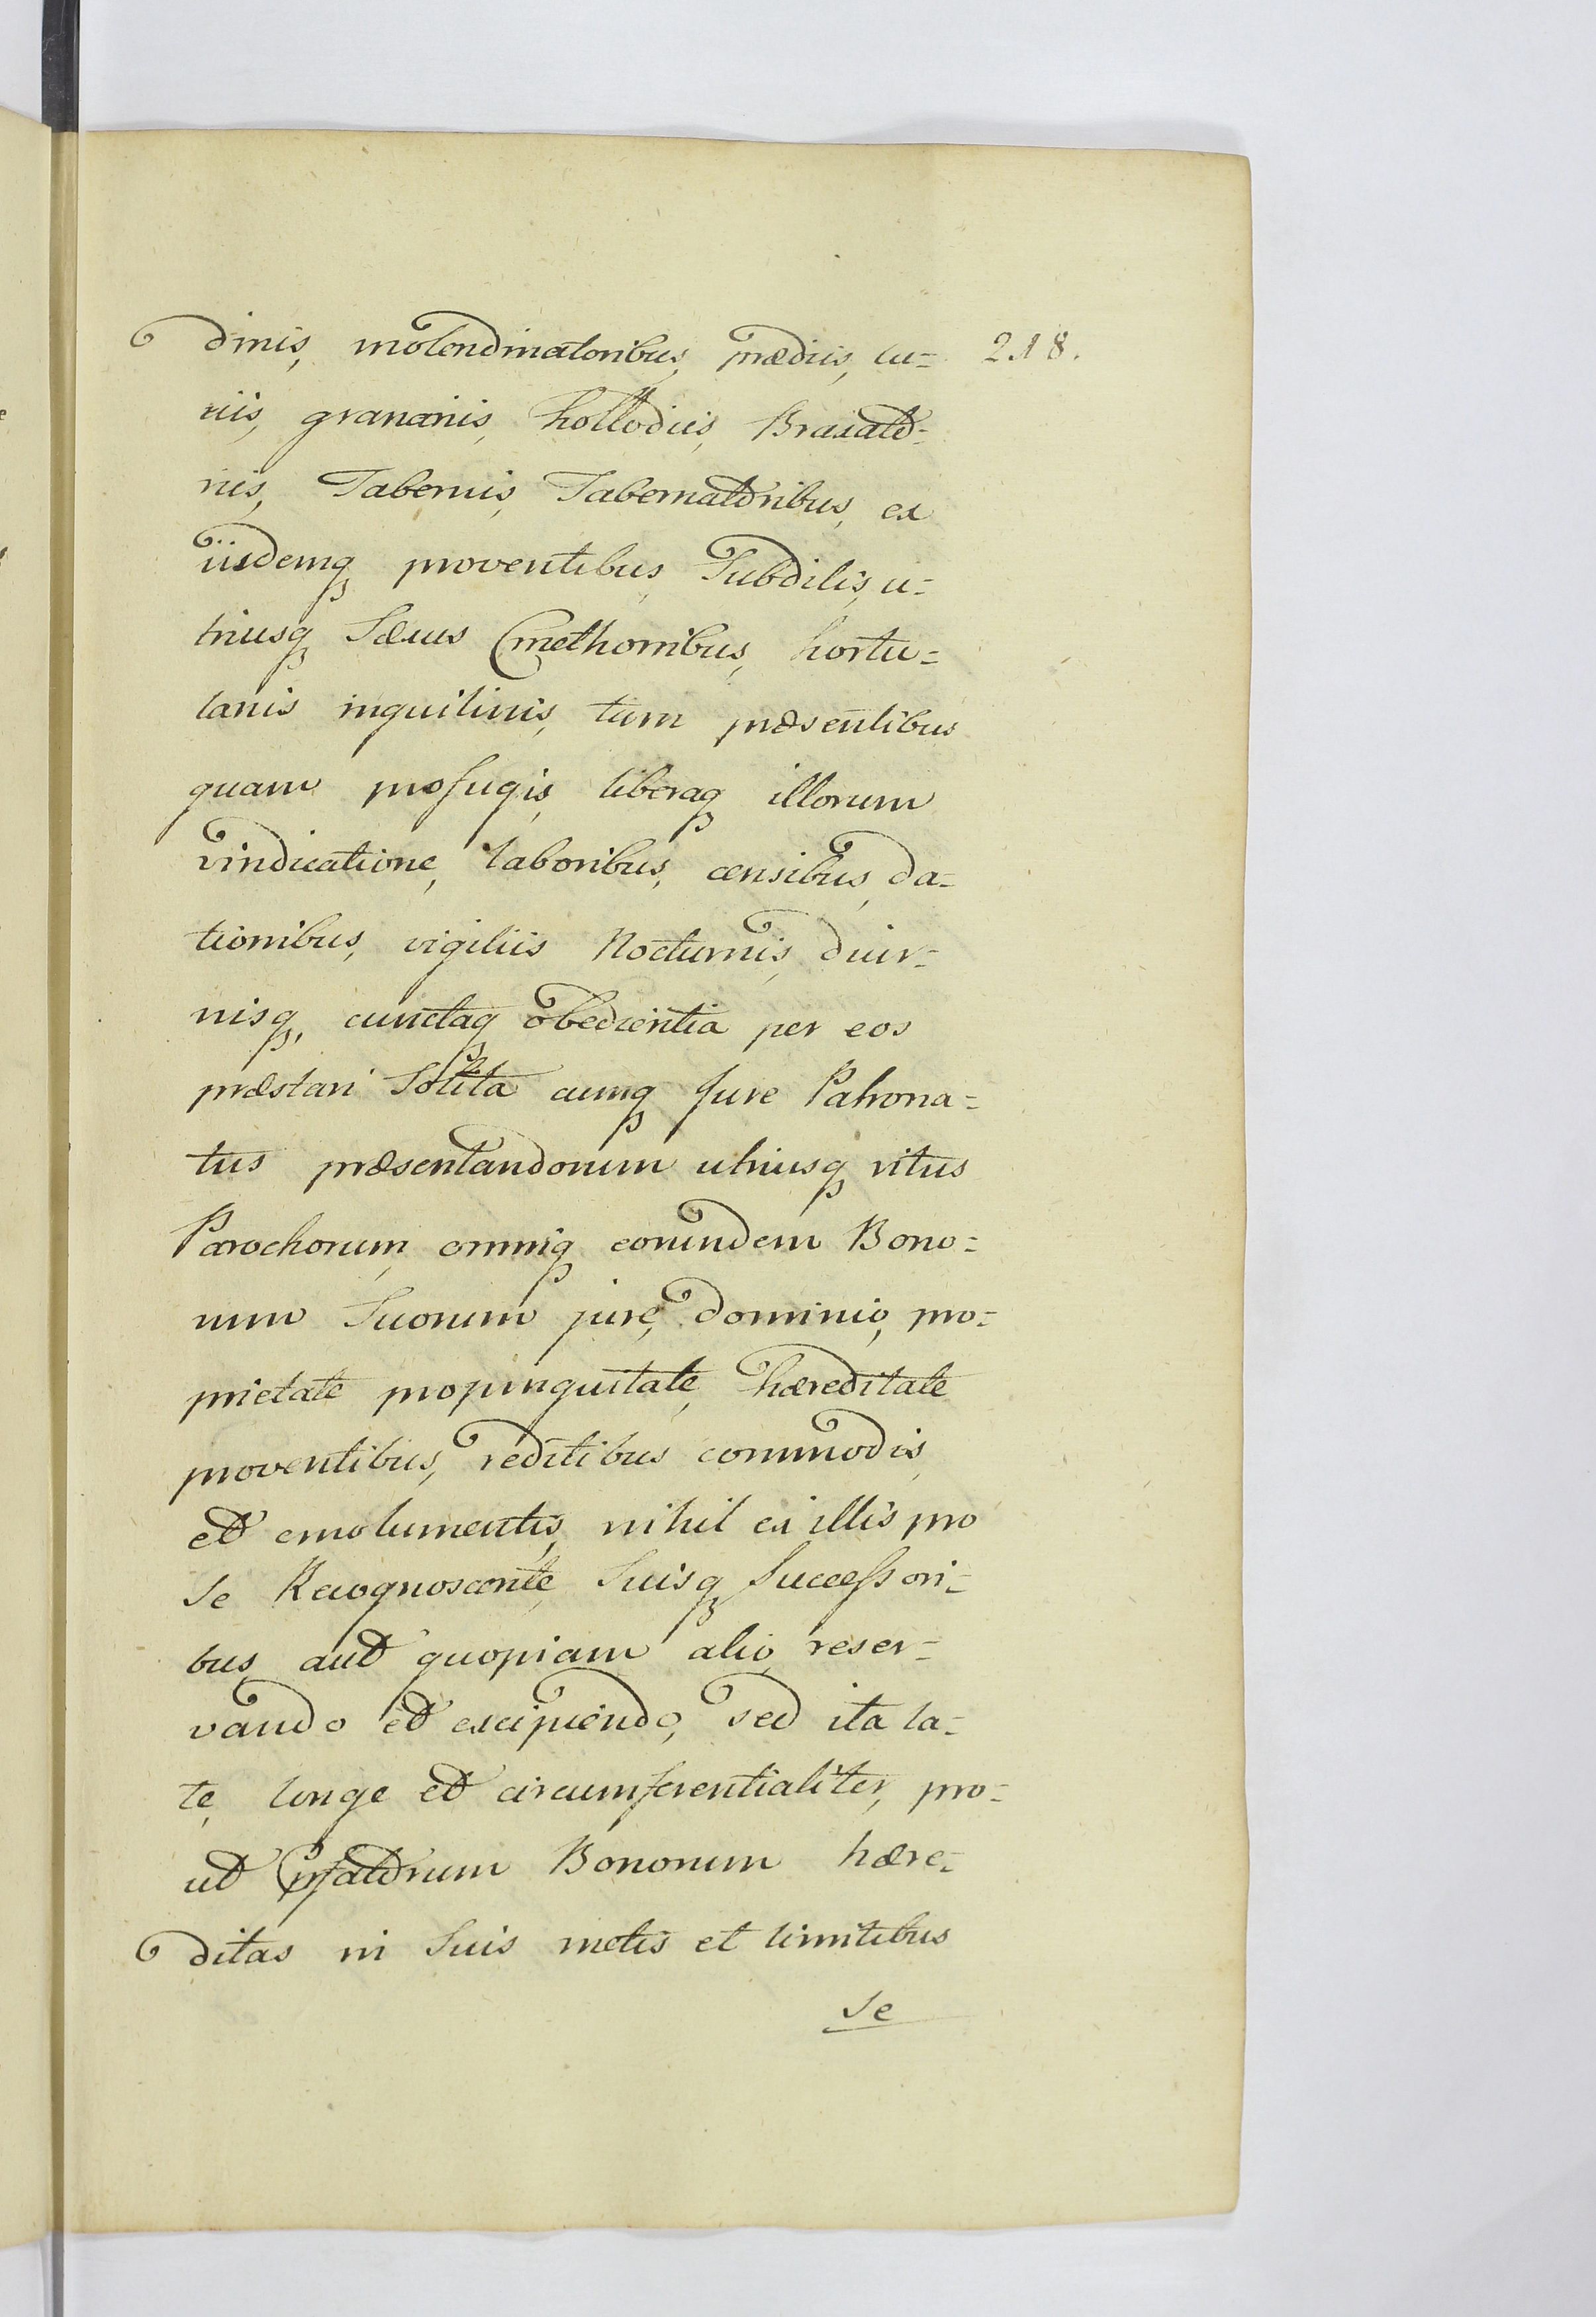 dinis, molendinatoribus, prædiis, cu- 218.
riis, granariis, hollodiis, Braxato-
riis, Tabernis, Tabernatoribus, ex
iisdemq proventibus, Subditis, u-
triusq Sexus Cmethonibus, hortu-
lanis inquilinis, tum præsentibus
quam profugis, liberaq illorum
vindicatione, laboribus, censibus, da-
tionibus, vigiliis Nocturnis, diur-
nisq, cunctaq obedientia per eos
præstari Solita cumq Jure Patrona-
tus præsentandorum utriusq ritus
Parochorum, omniq eorundem Bono-
rum Suorum jure, dominio, pro-
prietate propinquitate, hæreditate
proventibus, reditibus commodis,
et emolumentis, nihil ex illis pro
se Recognoscente, Suisq Successori-
bus, aut quopiam alio, reser-
vando et excipiendo, sed ita la-
te, longe et circumferentialiter, pro-
ut pfatorum Bonorum hære-
ditas in Suis metis et limitibus
se